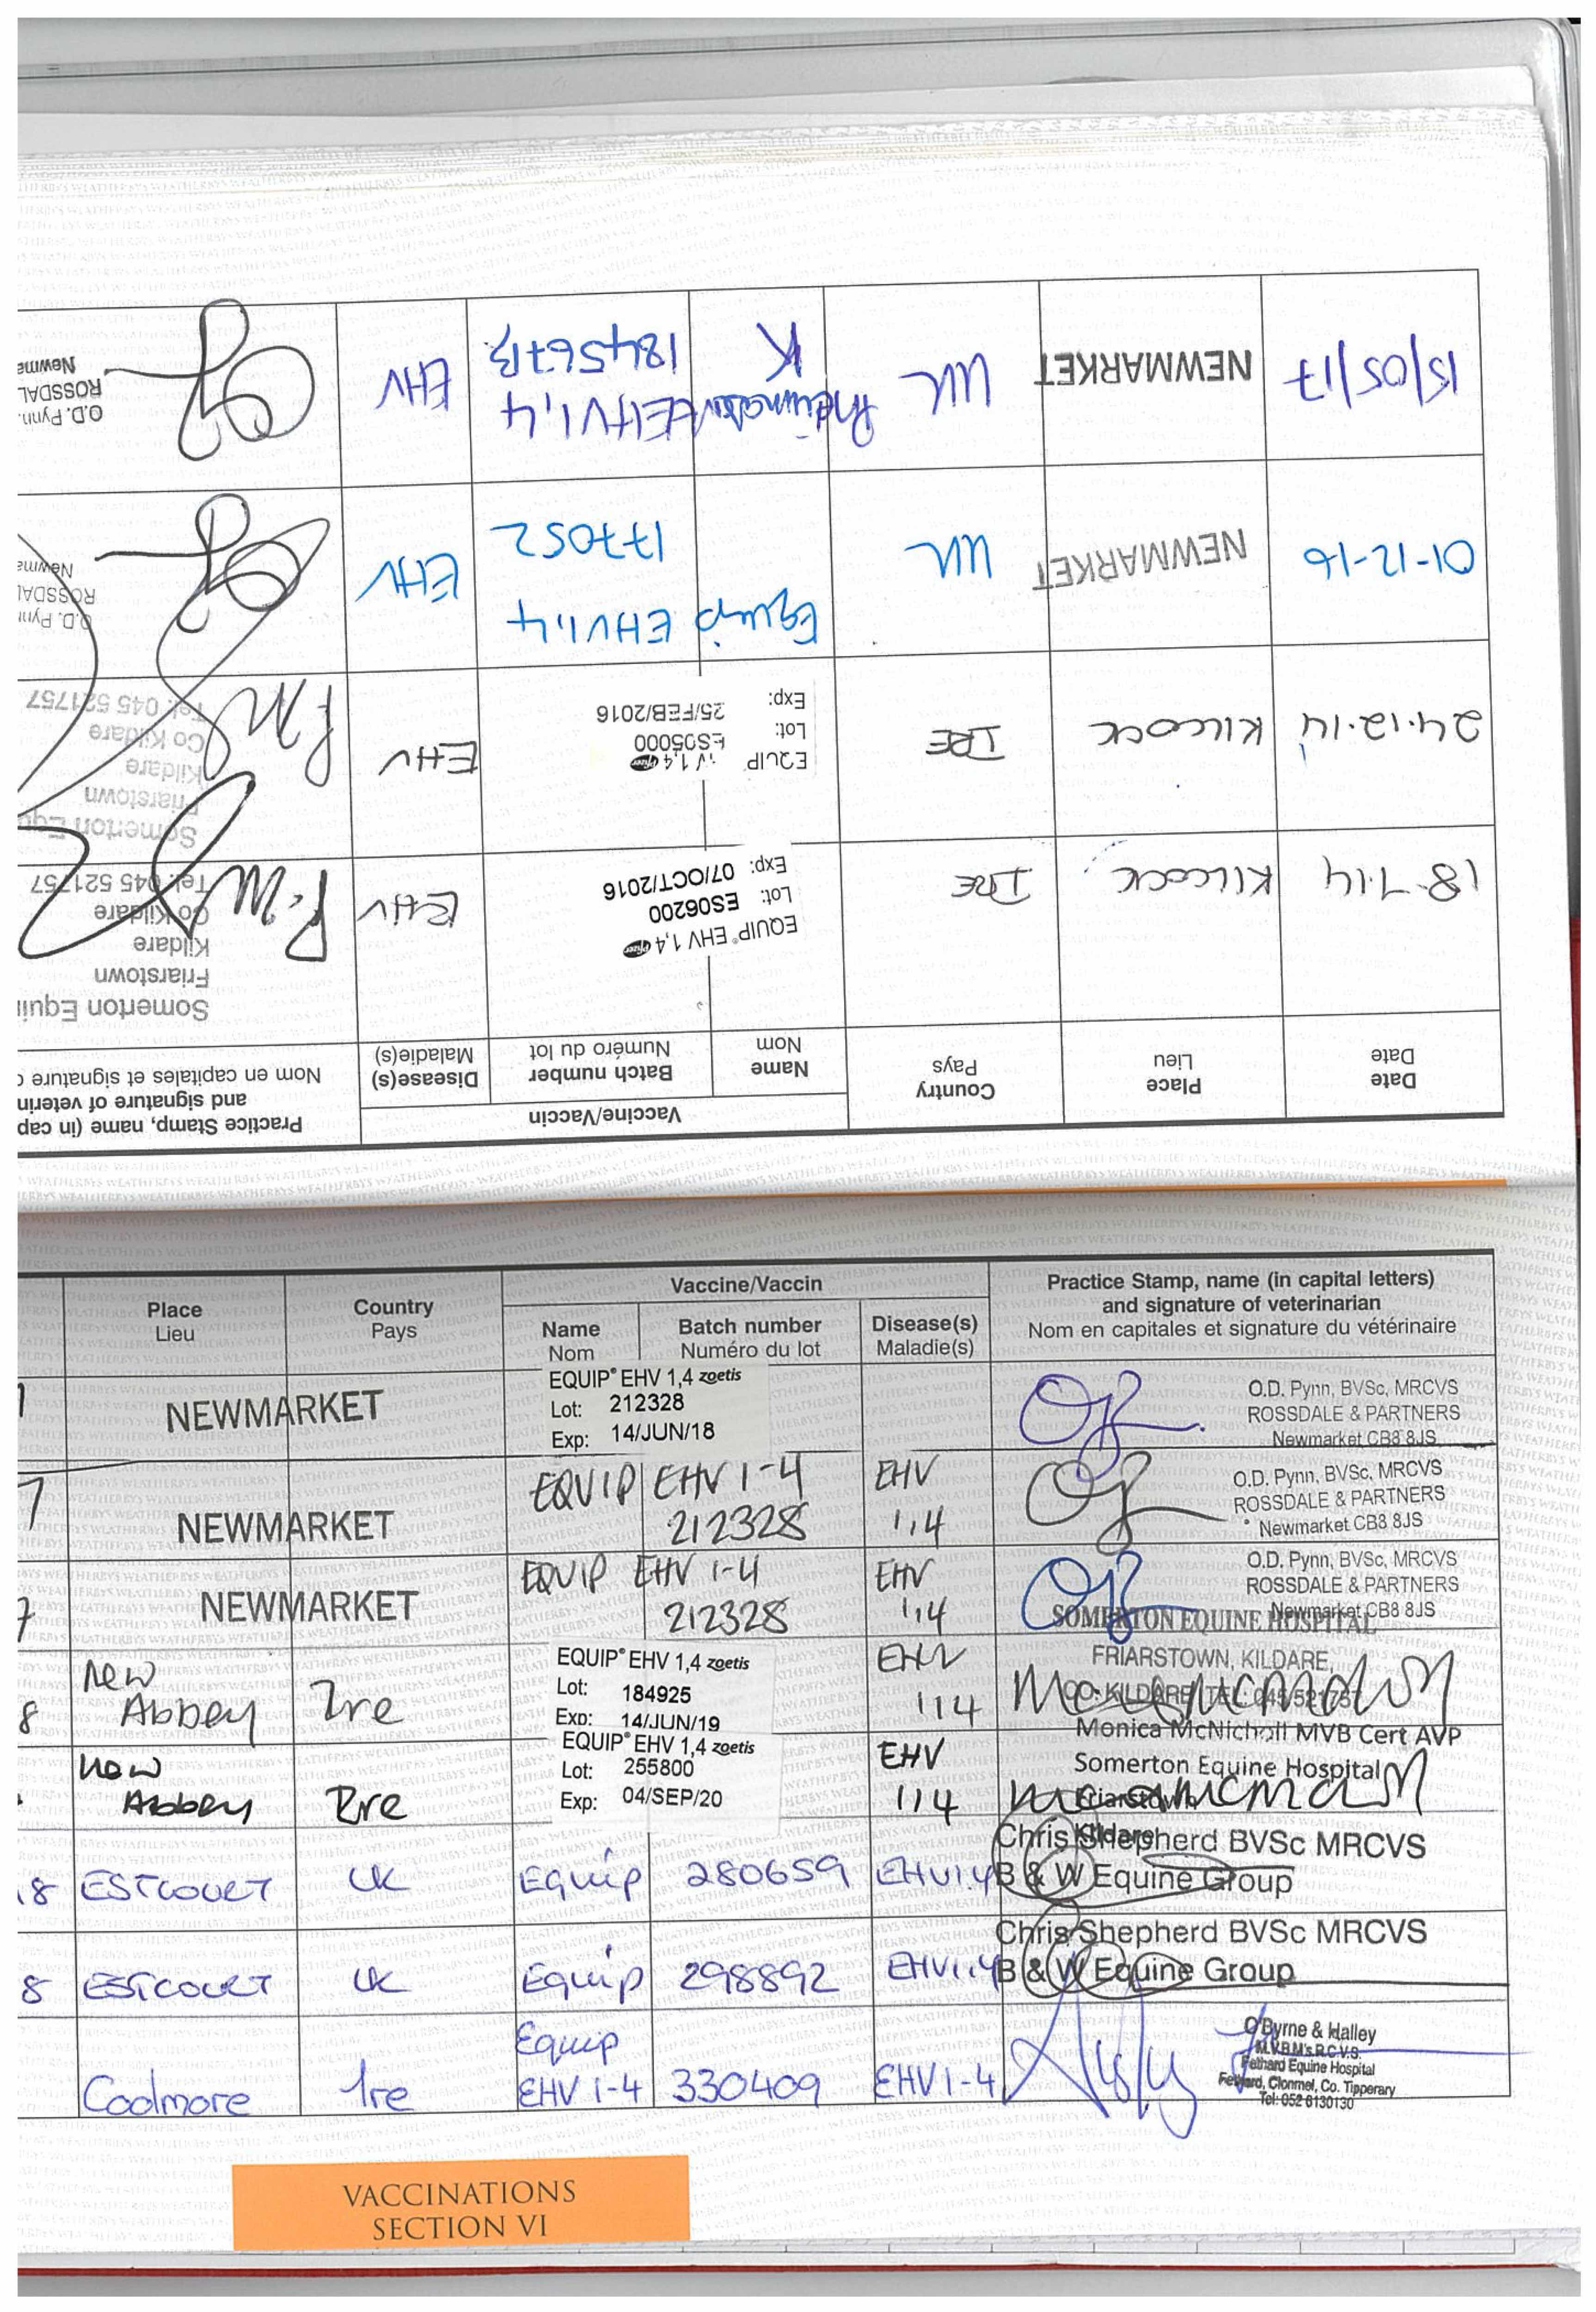 Date Place Country Vaccine/Vaccin Practice Stamp, name (in cap
Date Lieu Pays Name Batch number Disease(s) and signature of veterin
Nom Numéro du lot Maladie(s) Nom en capitales et signature d
18.7.14 KILCOCK IRE EQUIP® EHV 1,4 Pfizer EHV Somerton Equi
Lot: ES06200 Friarstown
Exp: 07/OCT/2016 Kildare
Co Kildare
Tel: 045 521757
24.12.14 KILCOCK IRE EQUIP 1,4 Pfizer EHV Somerton Equ
Lot: ES05000 Friarstown
Exp: 25/FEB/2016 Kildare
Co Kildare
Tel: 045 521757
01-12-16 NEWMARKET UK Equip EHV1,4 EHV O.D. Pynn
177052 ROSSDAL
Newma
15/05/17 NEWMARKET UK EHV1,4 EHV O.D. Pynn,
K 184567B ROSSDAL
Newma
Place Country Vaccine/Vaccin Practice Stamp, name (in capital letters)
Lieu Pays Name Batch number Disease(s) and signature of veterinarian
Nom Numéro du lot Maladie(s) Nom en capitales et signature du vétérinaire
NEWMARKET EQUIP® EHV 1,4 zoetis O.D. Pynn, BVSc, MRCVS
Lot: 212328 ROSSDALE & PARTNERS
Exp: 14/JUN/18 Newmarket CB8 8JS
7 NEWMARKET EQUIP EHV 1-4 EHV O.D. Pynn, BVSc, MRCVS
212328 1,4 ROSSDALE & PARTNERS
Newmarket CB8 8JS
7 NEWMARKET EQUIP EHV 1-4 EHV O.D. Pynn, BVSc, MRCVS
212328 1,4 ROSSDALE & PARTNERS
Newmarket CB8 8JS
SOMERTON EQUINE HOSPITAL
New EQUIP® EHV 1,4 zoetis EHV FRIARSTOWN, KILDARE,
8 Abbey Ire Lot: 184925 1,4 CO. KILDARE TEL:
Exp: 14/JUN/19
Monica McNicholl MVB Cert AVP
New EQUIP® EHV 1,4 zoetis EHV Somerton Equine Hospital
Abbey Ire Lot: 255800 1,4 Friarstown
Exp: 04/SEP/20 Kildare
18 ESTCOURT UK Equip 280659 EHV1.4 Chris Shepherd BVSc MRCVS
B & W Equine Group
8 ESTCOURT UK Equip 298892 EHV1.4 Chris Shepherd BVSc MRCVS
B & W Equine Group
Coolmore Ire Equip EHV 1-4 330409 EHV 1-4 O'Byrne & Halley
M.V.B.M's.R.C.V.S.
Fethard Equine Hospital
Fethard, Clonmel, Co. Tipperary
Tel: 052 6130130
VACCINATIONS
SECTION VI